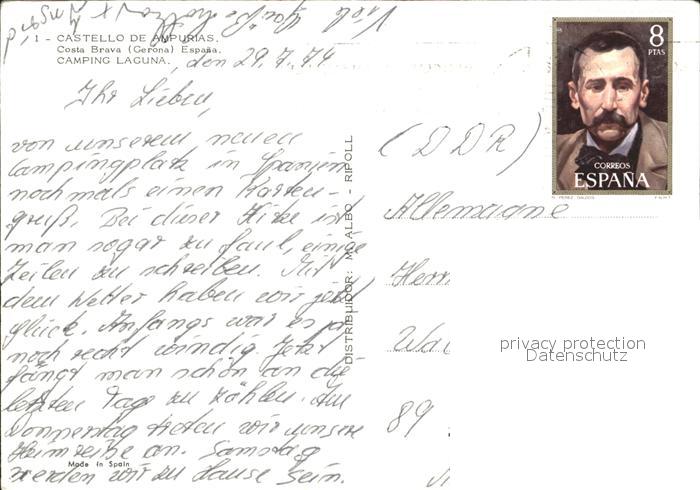 Viele
1 - CASTELLO DE AMPURIAS.
Costa Brava (Gerona) España.
CAMPING LAGUNA.
, den 29.7.74
Ihr Lieben,
von unserem neuen
Campingplatz in Spanien
nochmals einen Karten-
gruß. Bei dieser Hitze ist
man sogar zu faul, einige
Zeilen zu schreiben. Mit
dem Wetter haben wir jetzt
Glück. Anfangs war es ja
noch recht windig. Jetzt
fängt man schon an die
letzten Tage zu zählen. Am
Donnerstag treten wir unsere
Heimreise an. Samstag
werden wir zu Hause sein.
Made in Spain
DISTRIBUIDOR: M. ALBO - RIPOLL
8
PTAS
CORREOS
ESPAÑA
B. PEREZ GALDOS
F.N.M.T.
(DDR)
Allemagne
Herr
privacy protection
Datenschutz
89